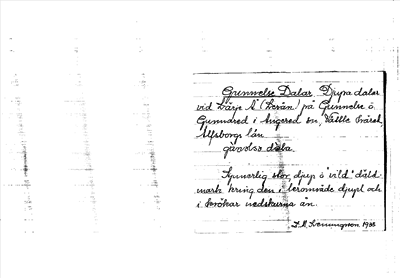 Gunnelse Dalar, Djupa dalar
vid Lärje Å (Lerån) på Gunnelse ä.
Gunnared i Angered sn, Vättle härad,
Älfsborgs län.
gŭnəlsə dɑlɑ
Synnerlig stor, djup o "vild" däld
mark kring den i lerområde djupt och
i krökar nedskurna ån.
1938